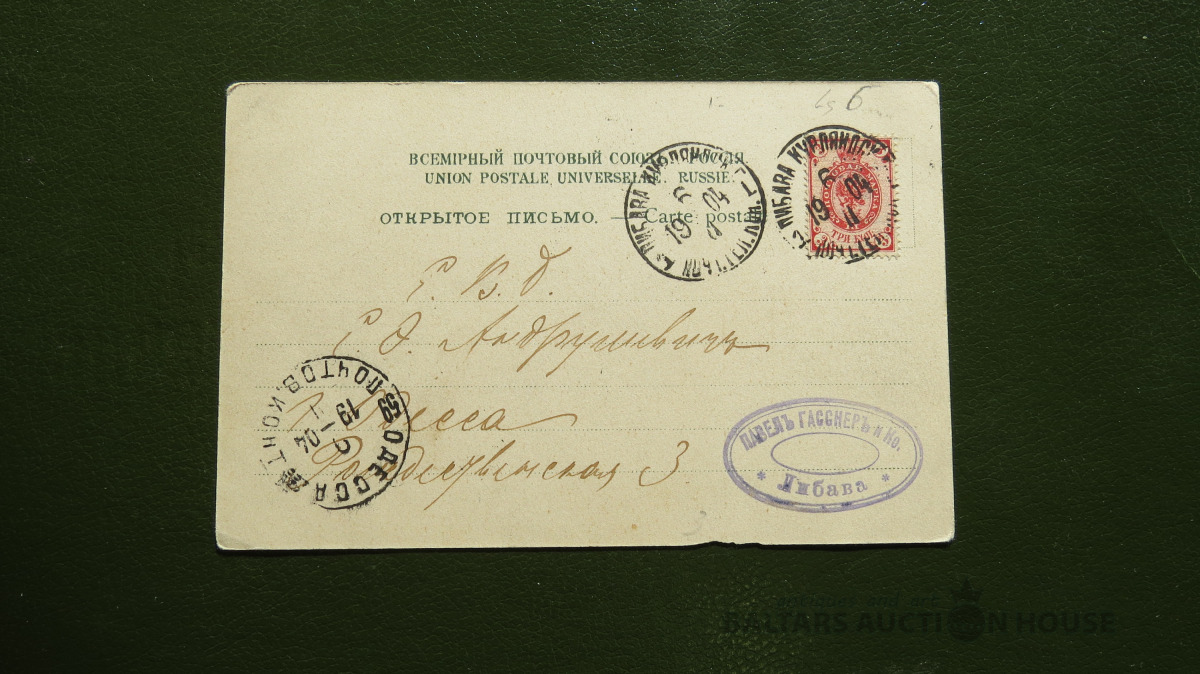 ВСЕМІРНЫЙ ПОЧТОВЫЙ СОЮЗЪ. РОССІЯ.
UNION POSTALE UNIVERSELLE. RUSSIE.
ОТКРЫТОЕ ПИСЬМО. — Carte postale
ЛИБАВА КУРЛЯНДСК.
6
19 04
ЛИБАВА КУРЛЯНДСК.
6
19 04
II
ПОЧТОВАЯ МАРКА
ТРИ КОП.
6
Е. В. Б.
Андрушевичъ
Одесса
Рождественская 3
ОДЕССА
ПОЧТОВ. КОНТ.
19 04
ПАВЕЛЪ ГАССНЕРЪ и Ко.
* Либава *
BALTARS AUCTION HOUSE